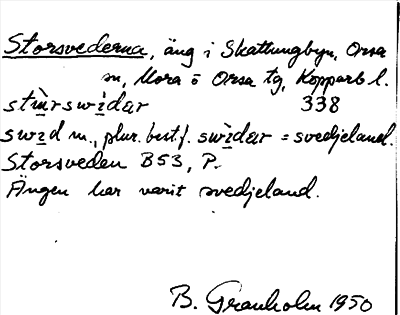 Storsvederna, äng i Skattungbyn, Orsa
sn, Mora o Orsa tg, Kopparb l.
stɷ̀rswìdar 338
swid m., plur. best. f. swìdar = svedjeland.
Storsveden B53, P.
Ängen har varit svedjeland.
B. Granholm 1950